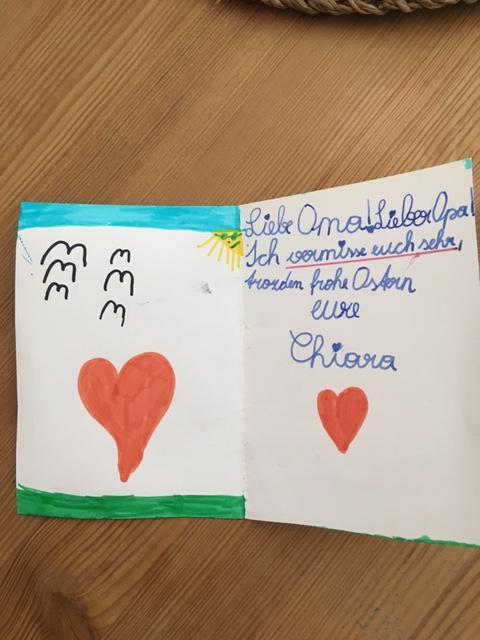 Liebe Oma! Lieber Opa!
Ich vermisse euch sehr,
trozden frohe Ostern
eure
Chiara